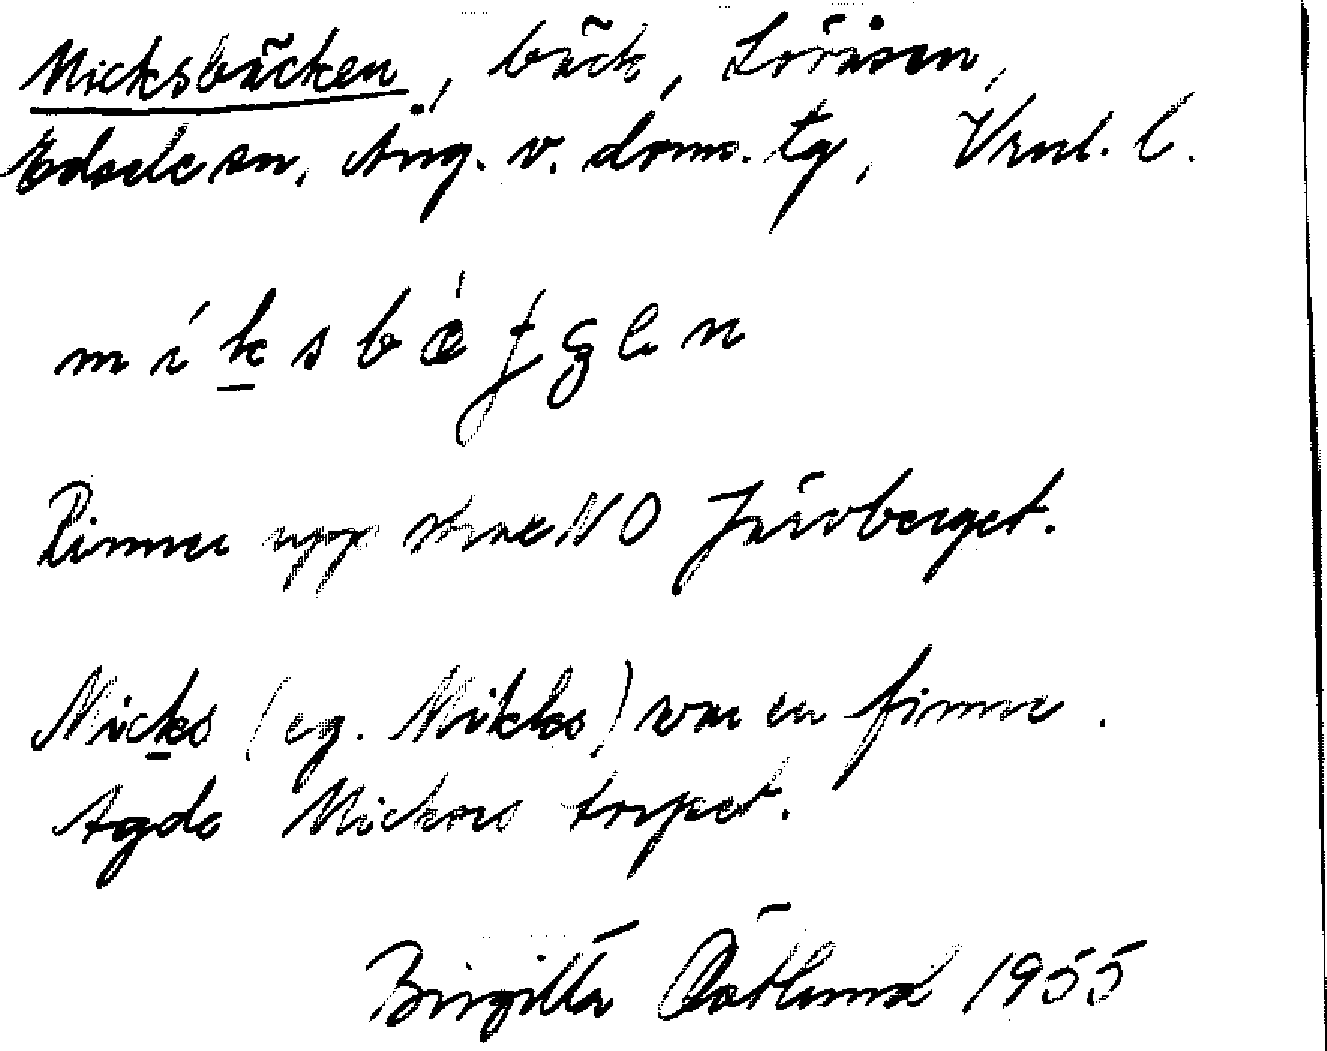 Micksbäcken, bäck, Lövåsen,
Edsele sn, Ång. v. doms. tg, Vrnl. l.
m í k s b æ̀ ƒ ʒ e n
Rinner upp strax NO Järvberget.
Micks (eg. Mikks) var en finne.
Ägde Mickors torpet.
Birgitta Östlund 1955